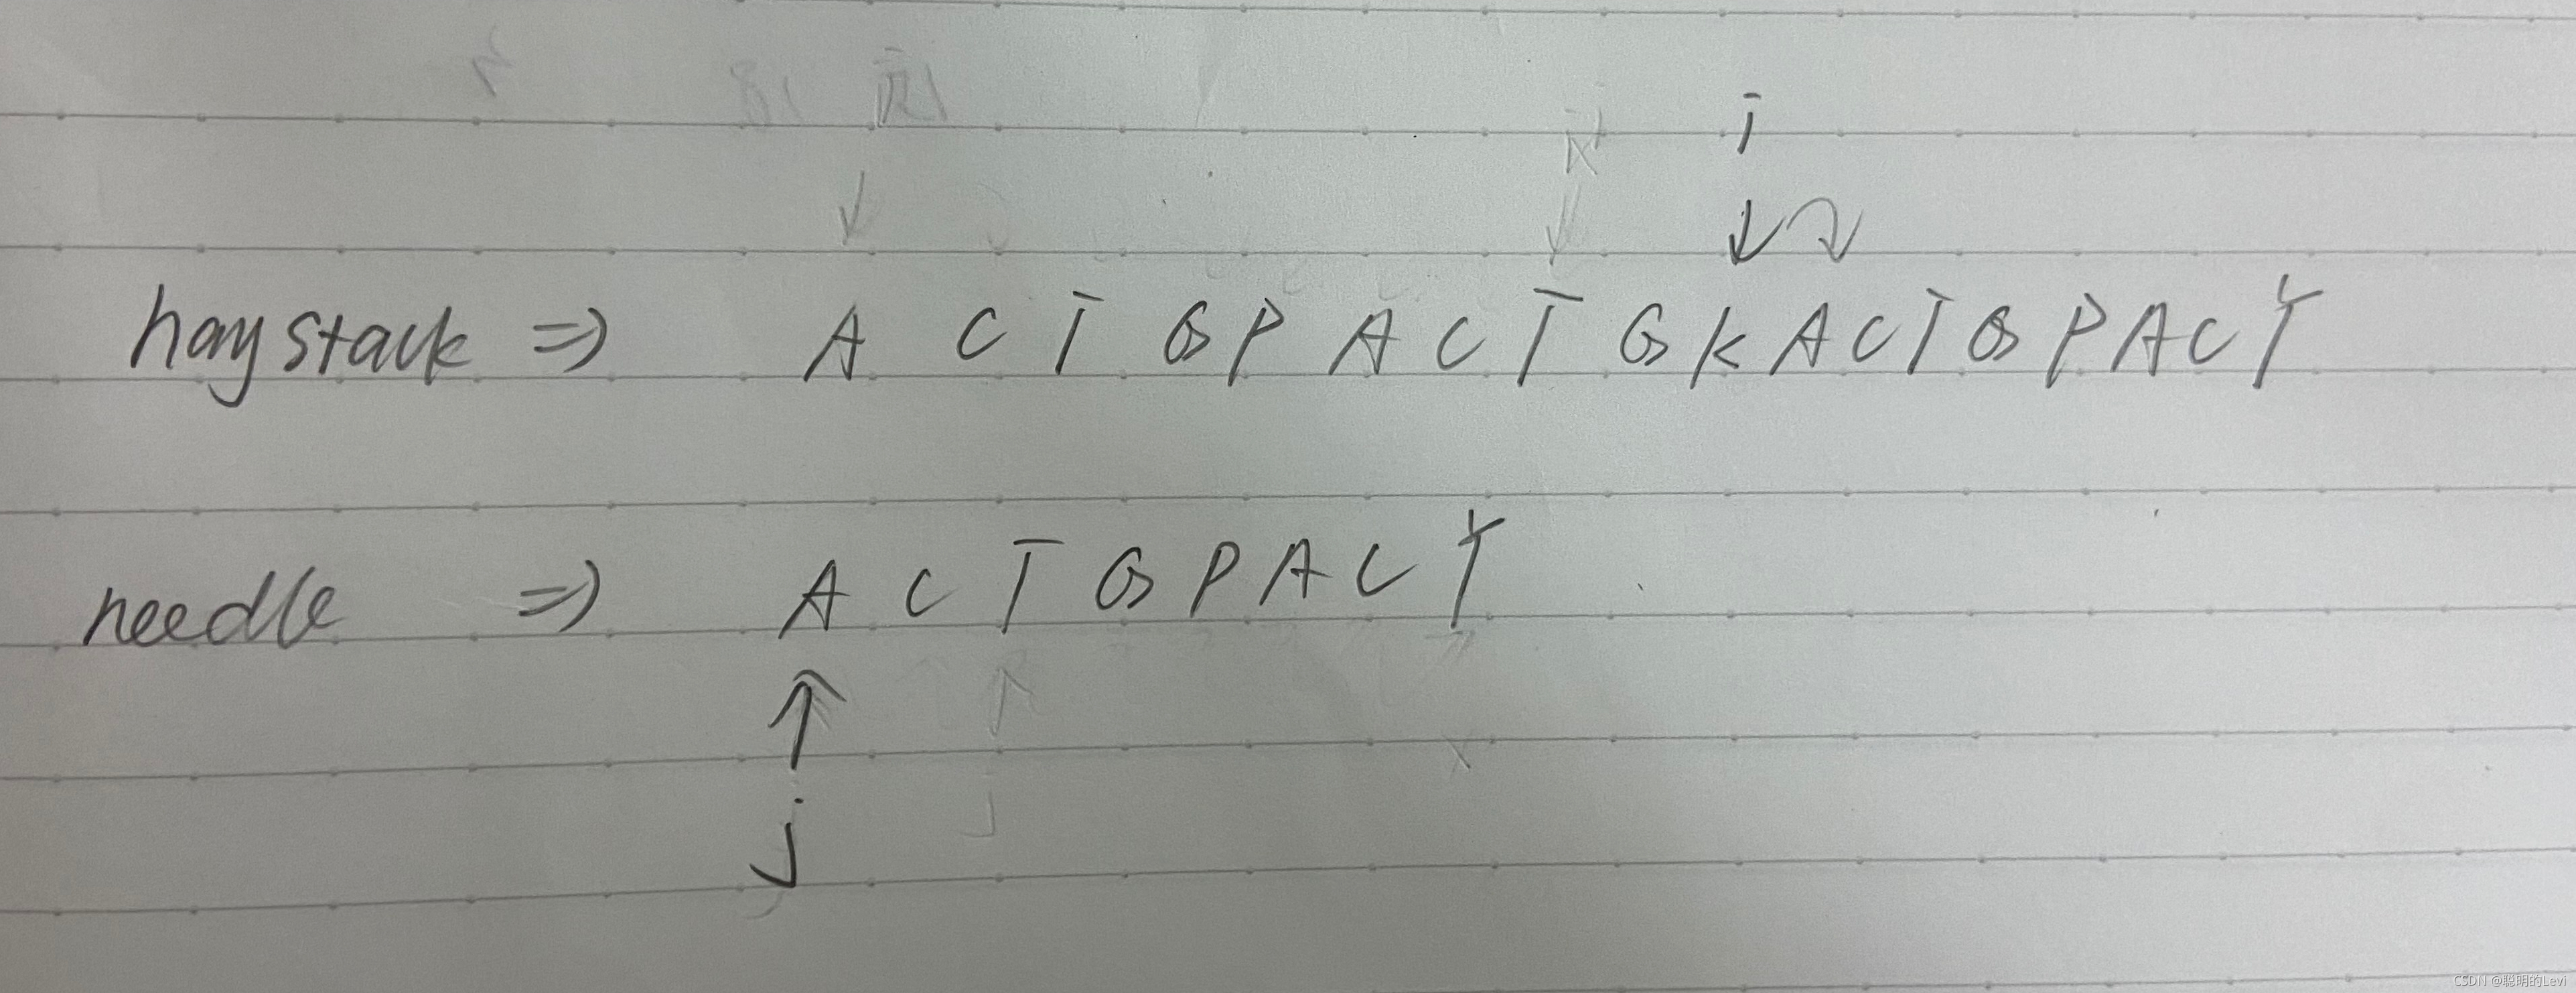 i
haystack => A C T G P A C T G K A C T G P A C Y
needle => A C T G P A C Y
j
CSDN @聪明的Levi